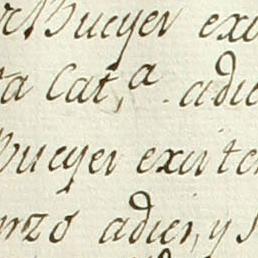 Bueyer exi
ta Cat,ª adie
Bueyer existen
nzo adier, y s